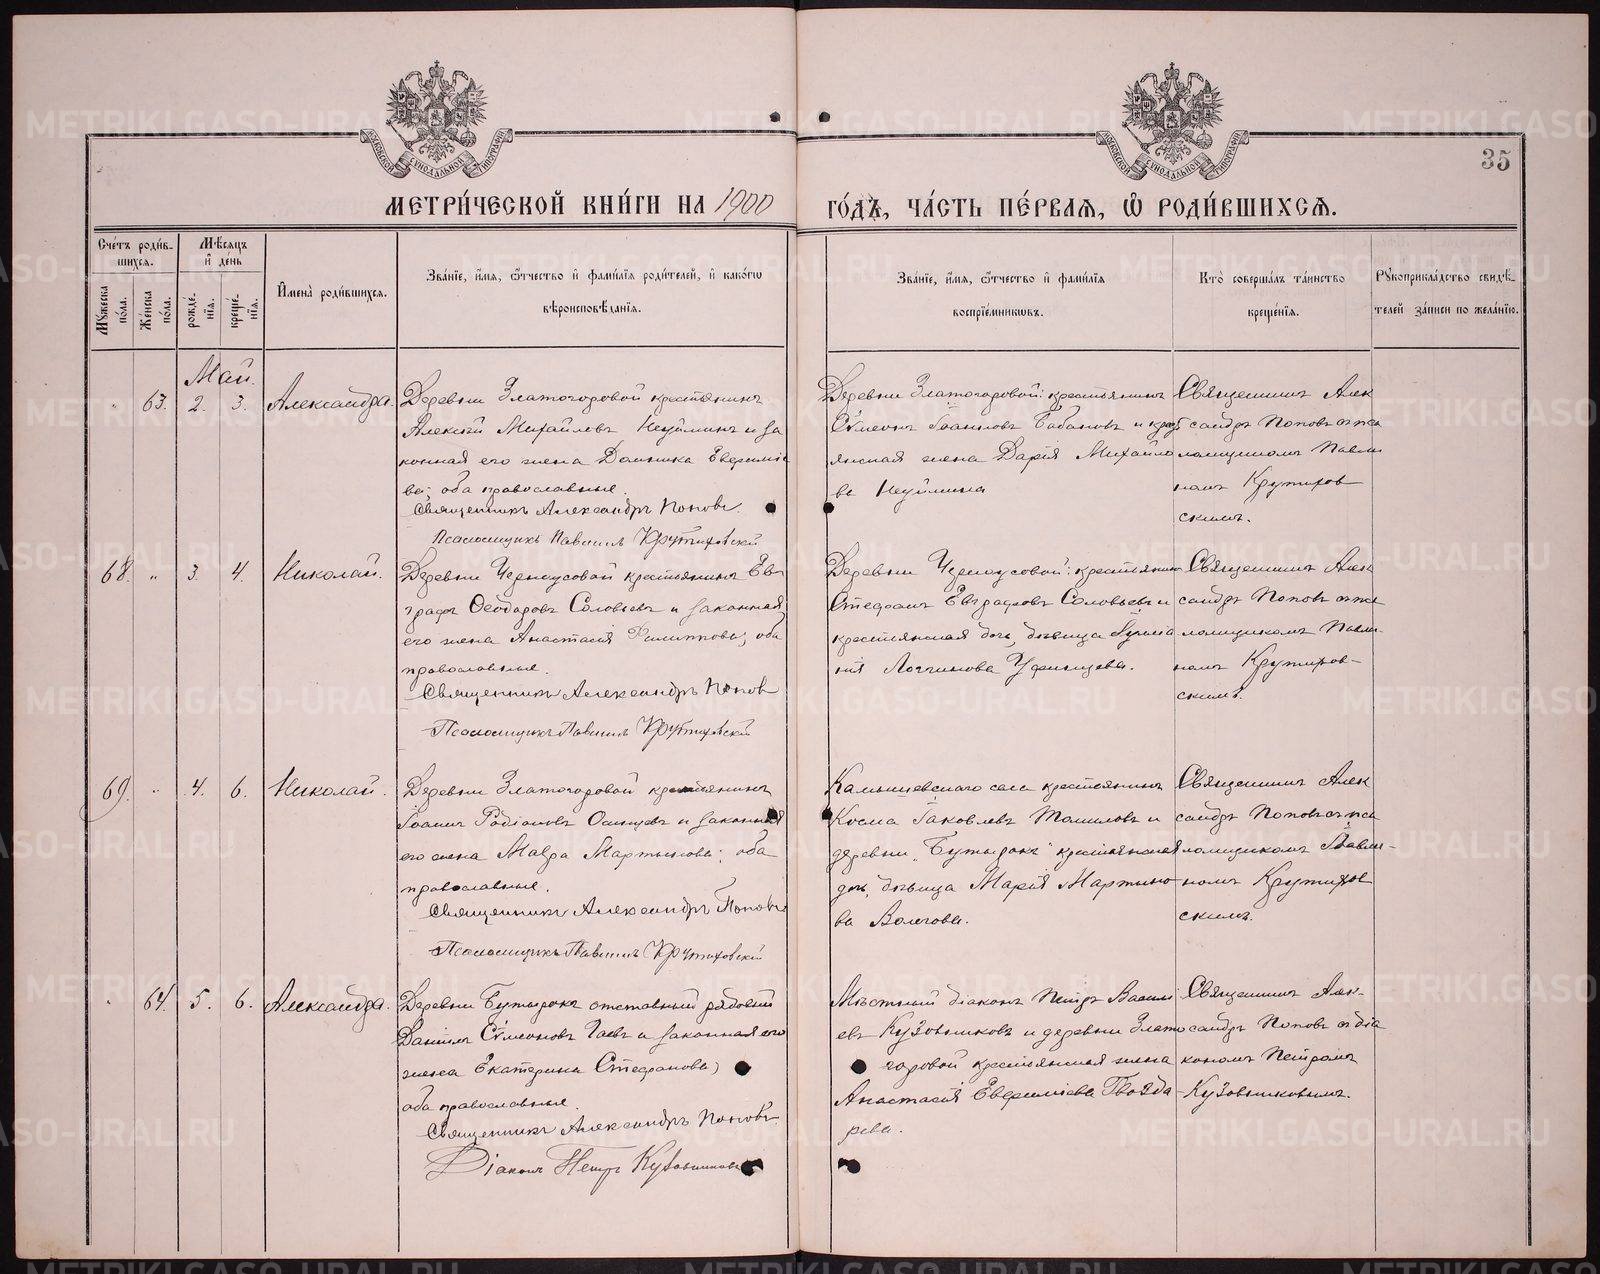 35
МЕТРИ́ЧЕСКОЙ КНИ́ГИ НА 1900
ГО́ДЪ, ЧА́СТЬ ПЕ́РВАѦ, Ѡ РОДИ́ВШИХСѦ.
Счетъ роди́в-
шихся.
Мѣсяцъ
и день
Мꙋжеска пола.
Женска пола.
рожде-
нія.
креще-
нія.
Имена̀ роди́вшихся.
Зва́ніе, и́мя, ѻ҆́тчество и҆ фами́лія роди́телей, и҆ како́гѡ
вѣроисповѣ́данія.
Зва́ніе, и́мя, ѻ҆́тчество и҆ фами́лія
воспріе́мниковъ.
Кто̀ соверша́лъ та́инство
креще́нія.
Рꙋкоприкла́дство свидѣ́-
телей за́писи по жела́нію.
Май.
63. 2. 3. Александра.
Деревни Златогоровой крестьянинъ
Алексѣй Михайловъ Неуйминъ и за
конная его жена Домника Евфиміе
ва; оба православные.
Священникъ Александръ Поповъ.
Псаломщикъ Павлинъ Крутиховскій
Деревни Златогоровой: крестьянинъ
Сѵмеонъ Іоанновъ Бабановъ и крест
янская жена Дарія Михайло
ва Неуймина
Священникъ Алек
сандръ Поповъ съ пса
ломщикомъ Павли
номъ Крутихов
скимъ.
68. " 3. 4. Николай.
Деревни Черноусовой крестьянинъ Ев
графъ Ѳеодоровъ Соловьевъ и законная
его жена Анастасія Филиппова; оба
православные.
Священникъ Александръ Поповъ
Псаломщикъ Павлинъ Крутиховскій
Деревни Черноусовой: крестьянинъ
Стефанъ Евграфовъ Соловьевъ и
крестьянская дочь, дѣвица
Логгинова Уфимцева.
Священникъ Алек
сандръ Поповъ съ пса
ломщикомъ Павли-
номъ Крутихов-
скимъ.
69. " 4. 6. Николай.
Деревни Златогоровой крестьянинъ
Іоаннъ Родіоновъ Осинцевъ и законная
его жена Мавра Мартынова; оба
православные.
Священникъ Александръ Поповъ
Псаломщикъ Павлинъ Крутиховскій
Камышевскаго села крестьянинъ
Косма Іаковлевъ Томиловъ и
деревни „Бутырокъ" крестьянская
дочь, дѣвица Марія Мартино
ва Волгова.
Священникъ Алек
сандръ Поповъ съ пса
ломщикомъ Павли-
номъ Крутихов
скимъ.
64. 5. 6. Александра.
Деревни Бутырокъ отставный рядовый
Даніилъ Сѵмеоновъ Гаевъ и законная его
жена Екатерина Стефанова;
оба православные.
Священникъ Александръ Поповъ.
Діаконъ Петръ Кузовниковъ
Мѣстный діаконъ Петръ Василі
евъ Кузовниковъ и деревни Злато
горовой крестьянская жена
Анастасія Евфиміева Гвозда
рева.
Священникъ Алек-
сандръ Поповъ съ діа
кономъ Петромъ
Кузовниковымъ.
METRIKI.GASO-URAL.RU